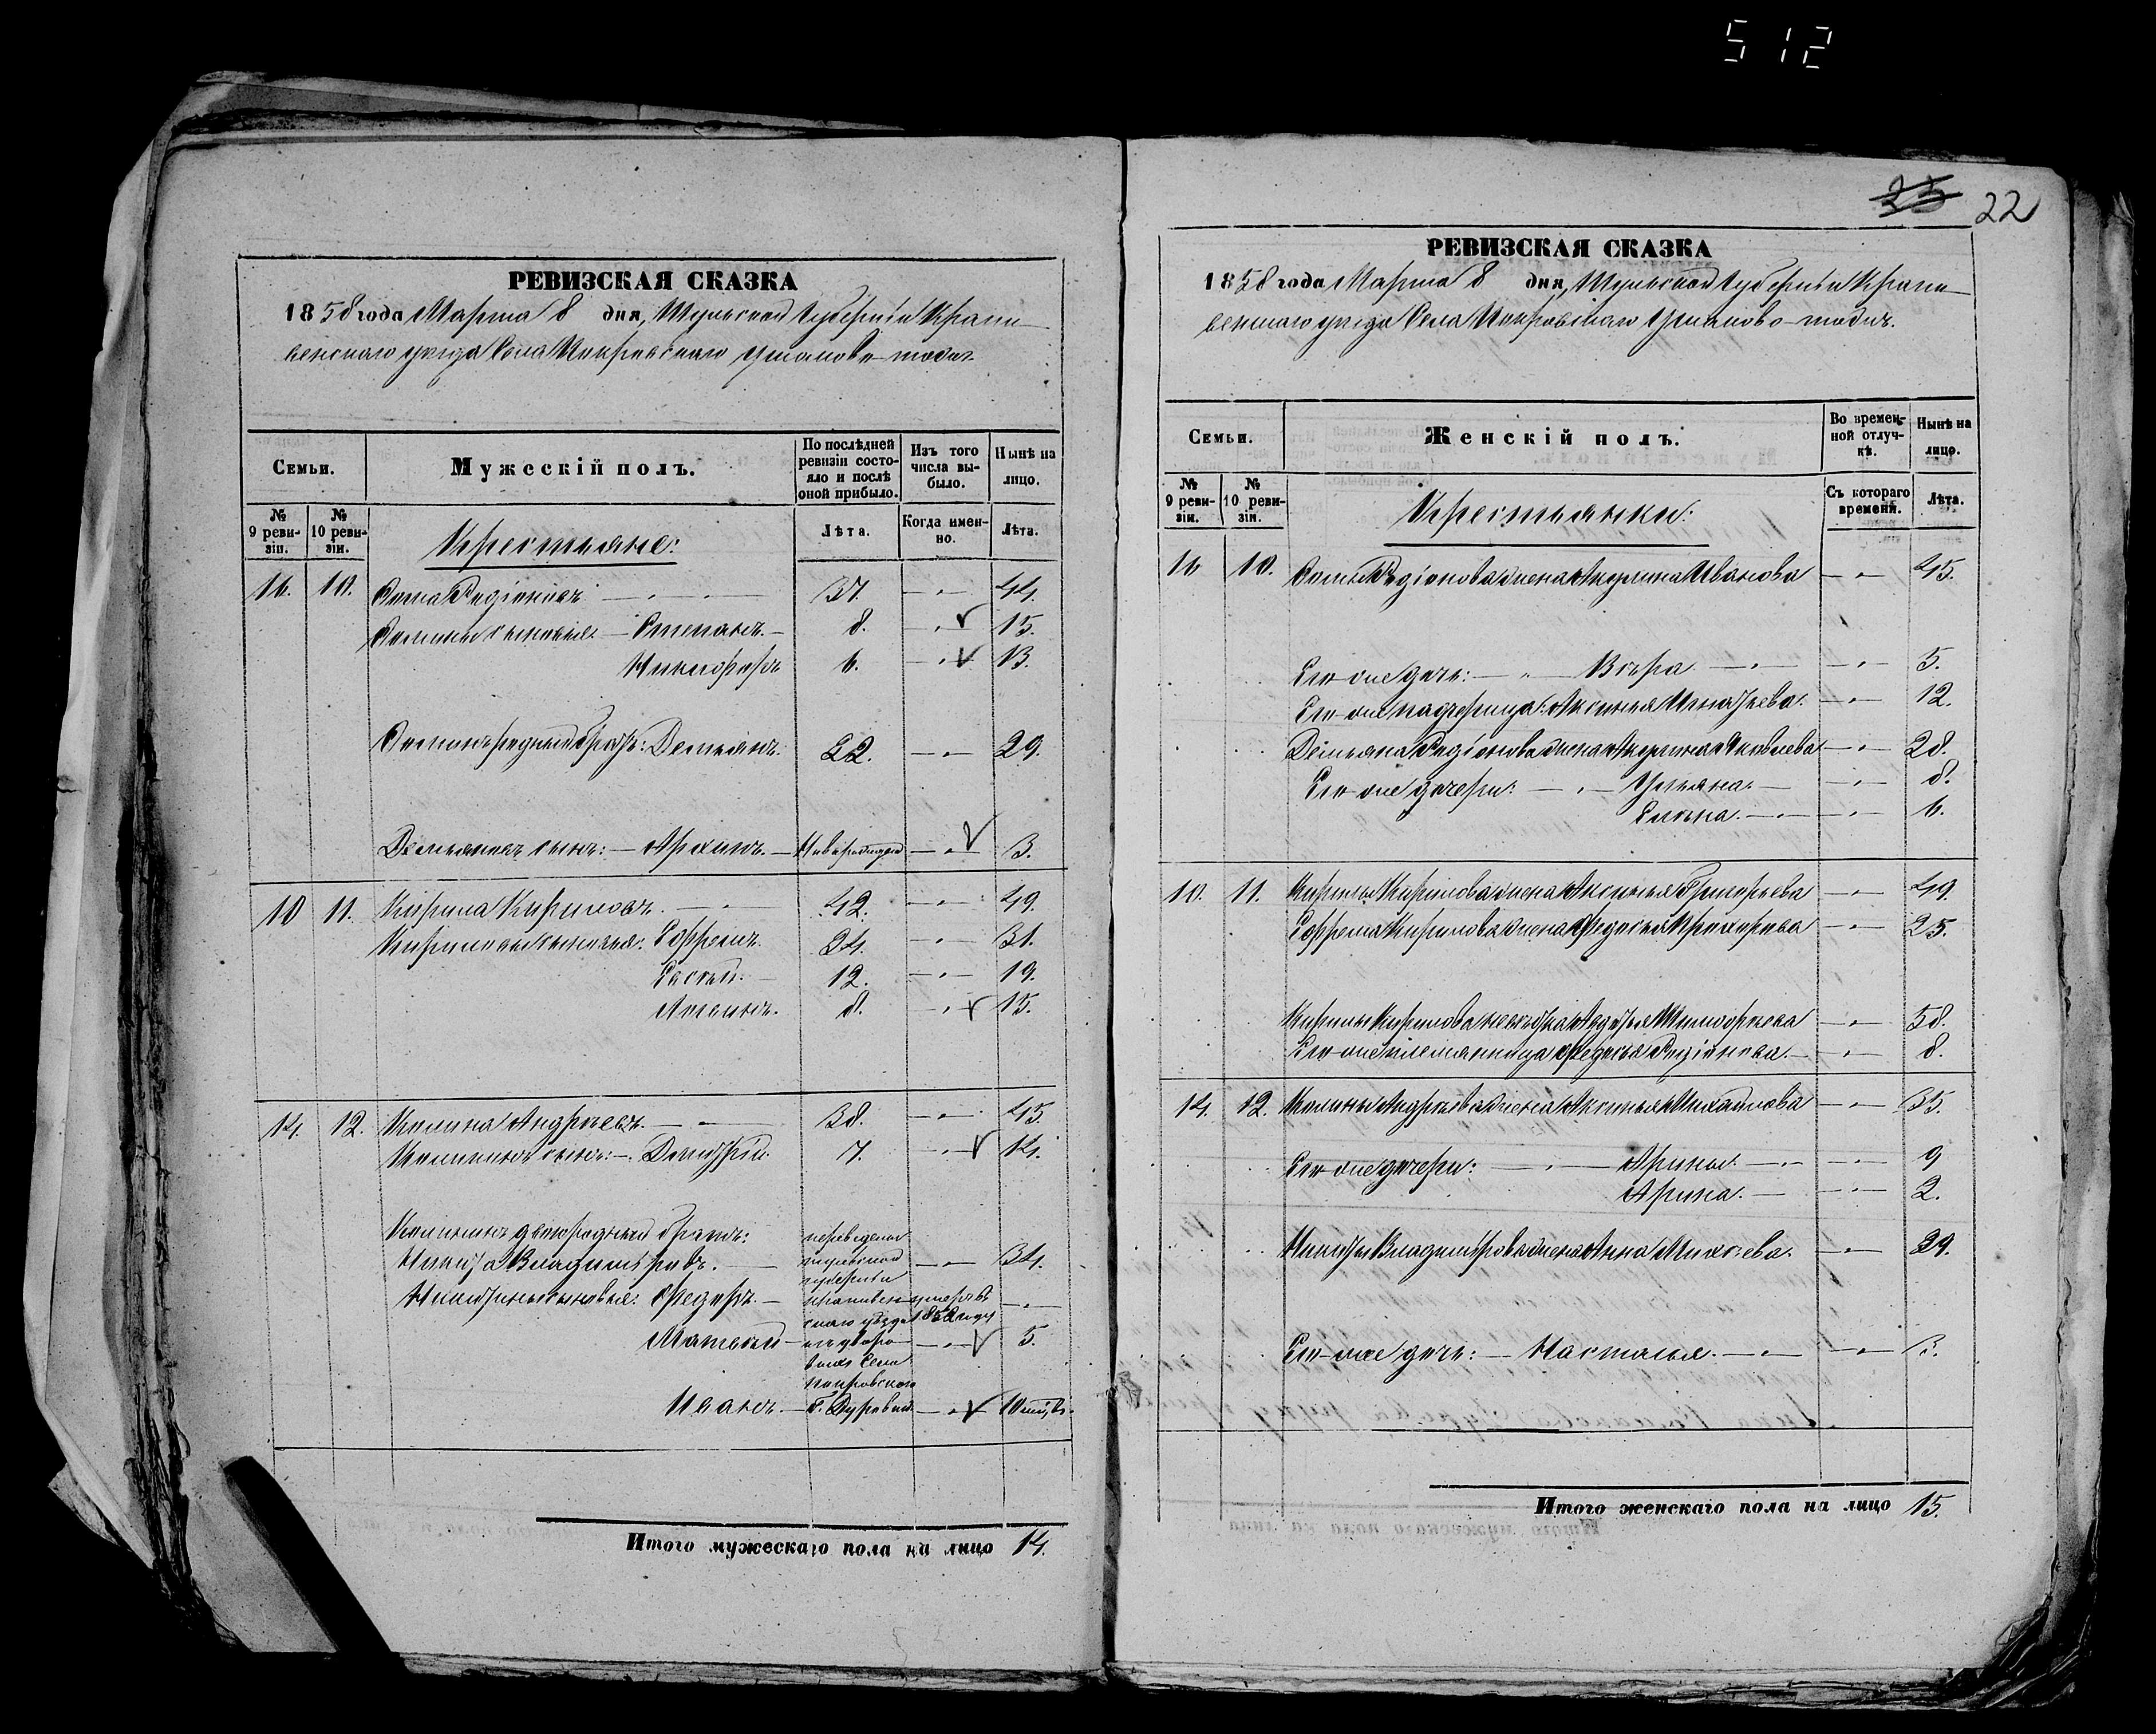 512
РЕВИЗСКАЯ СКАЗКА
1858 года Марта 8 дня, Тульской Губерніи Крапи-
венскаго уѣзда Села Покровскаго Ушаково тожъ.
Семьи.
Мужескій полъ.
По послѣдней ревизіи состояло и послѣ оной прибыло.
Изъ того числа выбыло.
Нынѣ на лицо.
№ 9 ревизіи.
№ 10 ревизіи.
Крестьяне:
Лѣта.
Когда именно.
Лѣта.
16. 10. Родіоновъ 37. 44.
сыновья: Степанъ. 8. 15.
Никифоръ 6. 13.
родной братъ: Демьянъ. 22. 29.
Демьяновъ сынъ: Архипъ. Новорожден 3.
10 11. Кирила Кириловъ. 42. 49.
Кириловы сыновья: Ефремъ. 24. 31.
12. 19.
8. 15.
14. 12. Калина Андреевъ. 38. 45.
Калининъ сынъ: Дмитрій. 7. 14.
Калининъ двоюродный братъ:
Никита Владиміровъ. 34.
Никитины сыновья: Федоръ.
переведены тульской губерніи крапивенскаго уѣзда Села покровскаго
умеръ въ 1852 году
Матвей 5.
Иванъ.
Итого мужескаго пола на лицо 14.
25 22
РЕВИЗСКАЯ СКАЗКА
1858 года Марта 8 дня, Тульской Губерніи Крапи-
венскаго уѣзда Села Покровскаго Ушаково тожъ.
Семьи.
Женскій полъ.
Во временной отлучкѣ.
Нынѣ на лицо.
№ 9 ревизіи.
№ 10 ревизіи.
Крестьянки:
Съ котораго времени.
Лѣта.
16 10. Родіонова жена Акулина Иванова 45.
Его же дочь: Вѣра 5.
Его же падчерица: Аксинья Игнатьева. 12.
Демьяна Родіонова жена Акулина Яковлева 28.
Его же дочери: Ульяна. 8.
Елена. 6.
10. 11. Кирилы Кирилова жена Аксинья Григорьева 49.
Ефрема Кирилова жена Федосья Прохорова 25.
Кирилы Кирилова невѣстка Авдотья Тимофеева 58.
Его же племянница Федосья Родіонова. 8.
14. 12. Калины Андреева жена Аксинья Михайлова 35.
Его же дочери: Арина. 9
Арина. 2.
Никиты Владимірова жена Анна Михеева. 29.
Его же дочь: Настасья. 3.
Итого женскаго пола на лицо 15.